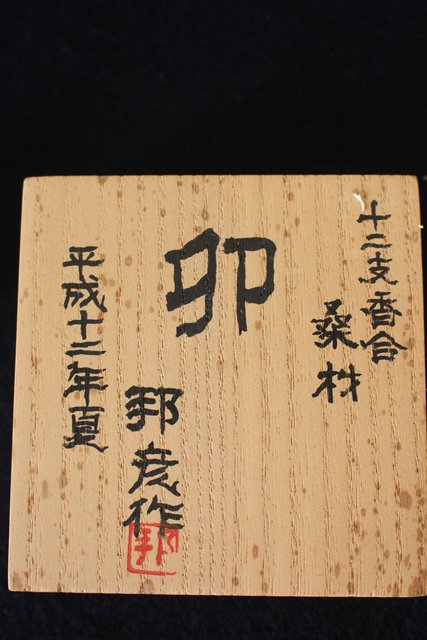 十二支香合
桑材
卯
邦彦作
邦
平成十二年夏